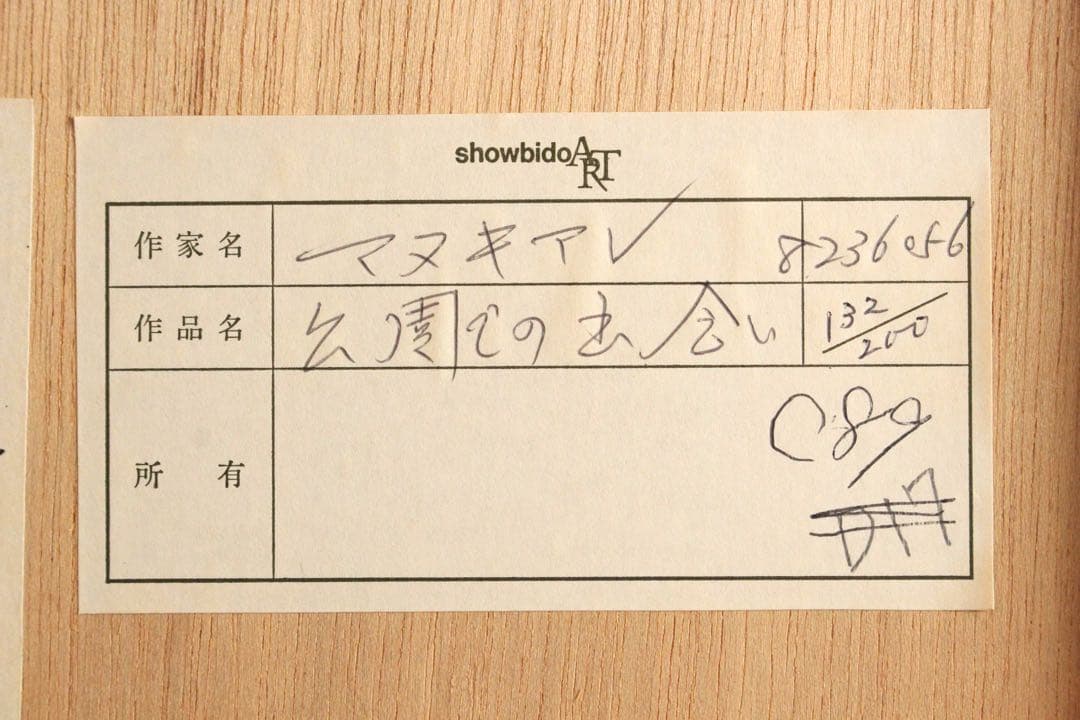 showbido ART
作家名 マヌキアン 8236056
作品名 公園での出会い 132/200
所有
C89